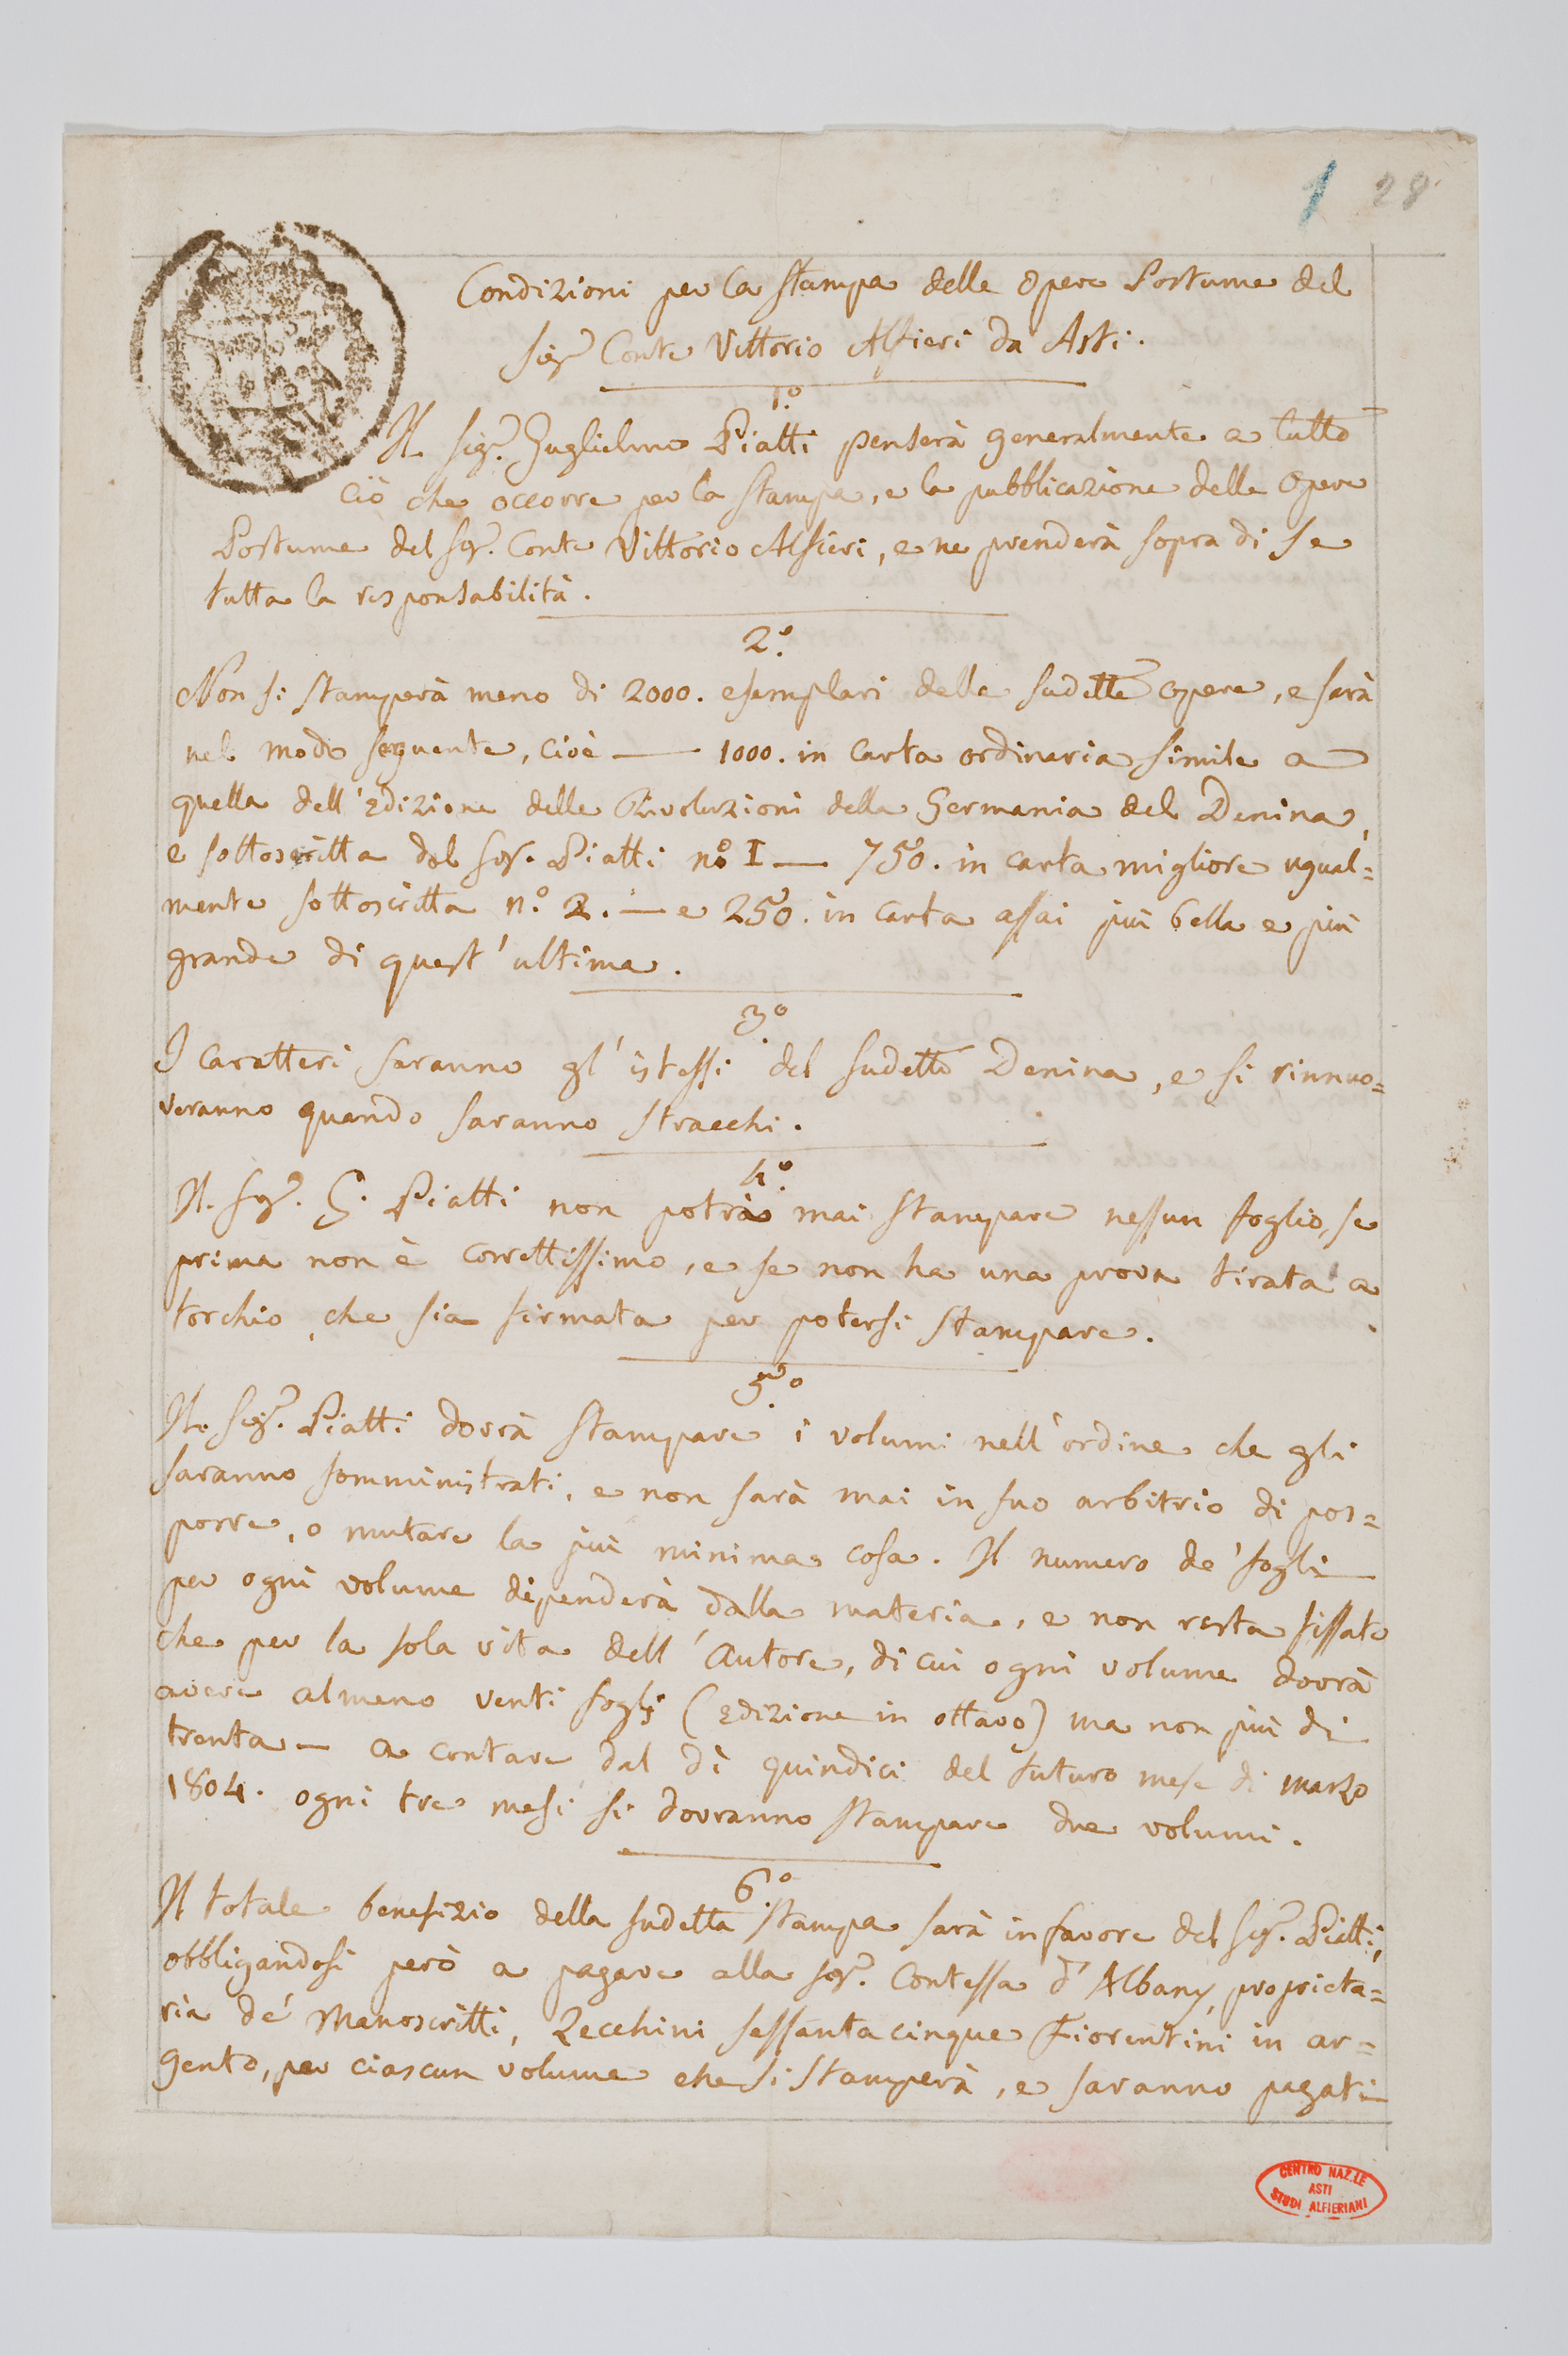 1 28
Condizioni per la stampa delle Opere Postume del
Sigr Conte Vittorio Alfieri da Asti.
1.o
Il Sigr. Guglielmo Piatti penserà generalmente a tutto
ciò che occorre per la stampa, e la pubblicazione delle Opere
Postume del Sigr. Conte Vittorio Alfieri, e ne prenderà sopra di se
tutta la responsabilità.
2.o
Non si stamperà meno di 2000. esemplari delle sudette opere, e sarà
nel modo seguente, cioè — 1000. in carta ordinaria simile a
quella dell'Edizione delle Rivoluzioni della Germania del Denina,
e sottoscritta dal Sigr. Piatti no. I — 750. in carta migliore ugual=
mente sottoscritta n.o 2. — e 250. in carta assai più bella e più
grande di quest'ultima.
3.o
I caratteri saranno gl'istessi del sudetto Denina, e si rinnuo=
veranno quando saranno stracchi.
4.o
Il Sigr. G. Piatti non potrà mai stampare nessun foglio, se
prima non è correttissimo, e se non ha una prova tirata a
torchio, che sia firmata per potersi stampare.
5.o
Il Sigr. Piatti dovrà stampare i volumi nell'ordine che gli
saranno somministrati, e non sarà mai in suo arbitrio di pos=
porre, o mutare la più minima cosa. Il numero de' fogli
per ogni volume dipenderà dalla materia, e non resta fissato
che per la sola vita dell'Autore, di cui ogni volume dovrà
avere almeno venti foglj (Edizione in ottavo) ma non più di
trenta — a contare dal dì quindici del futuro mese di marzo
1804. ogni tre mesi si dovranno stampare due volumi.
6.o
Il totale benefizio della sudetta stampa sarà in favore del Sigr. Piatti,
obbligandosi però a pagare alla Sigr. Contessa d'Albany, proprieta=
ria de' Manoscritti, Zecchini sessantacinque Fiorentini in ar=
gento, per ciascun volume che si stamperà, e saranno pagati
CENTRO NAZ.LE
ASTI
STUDI ALFIERIANI